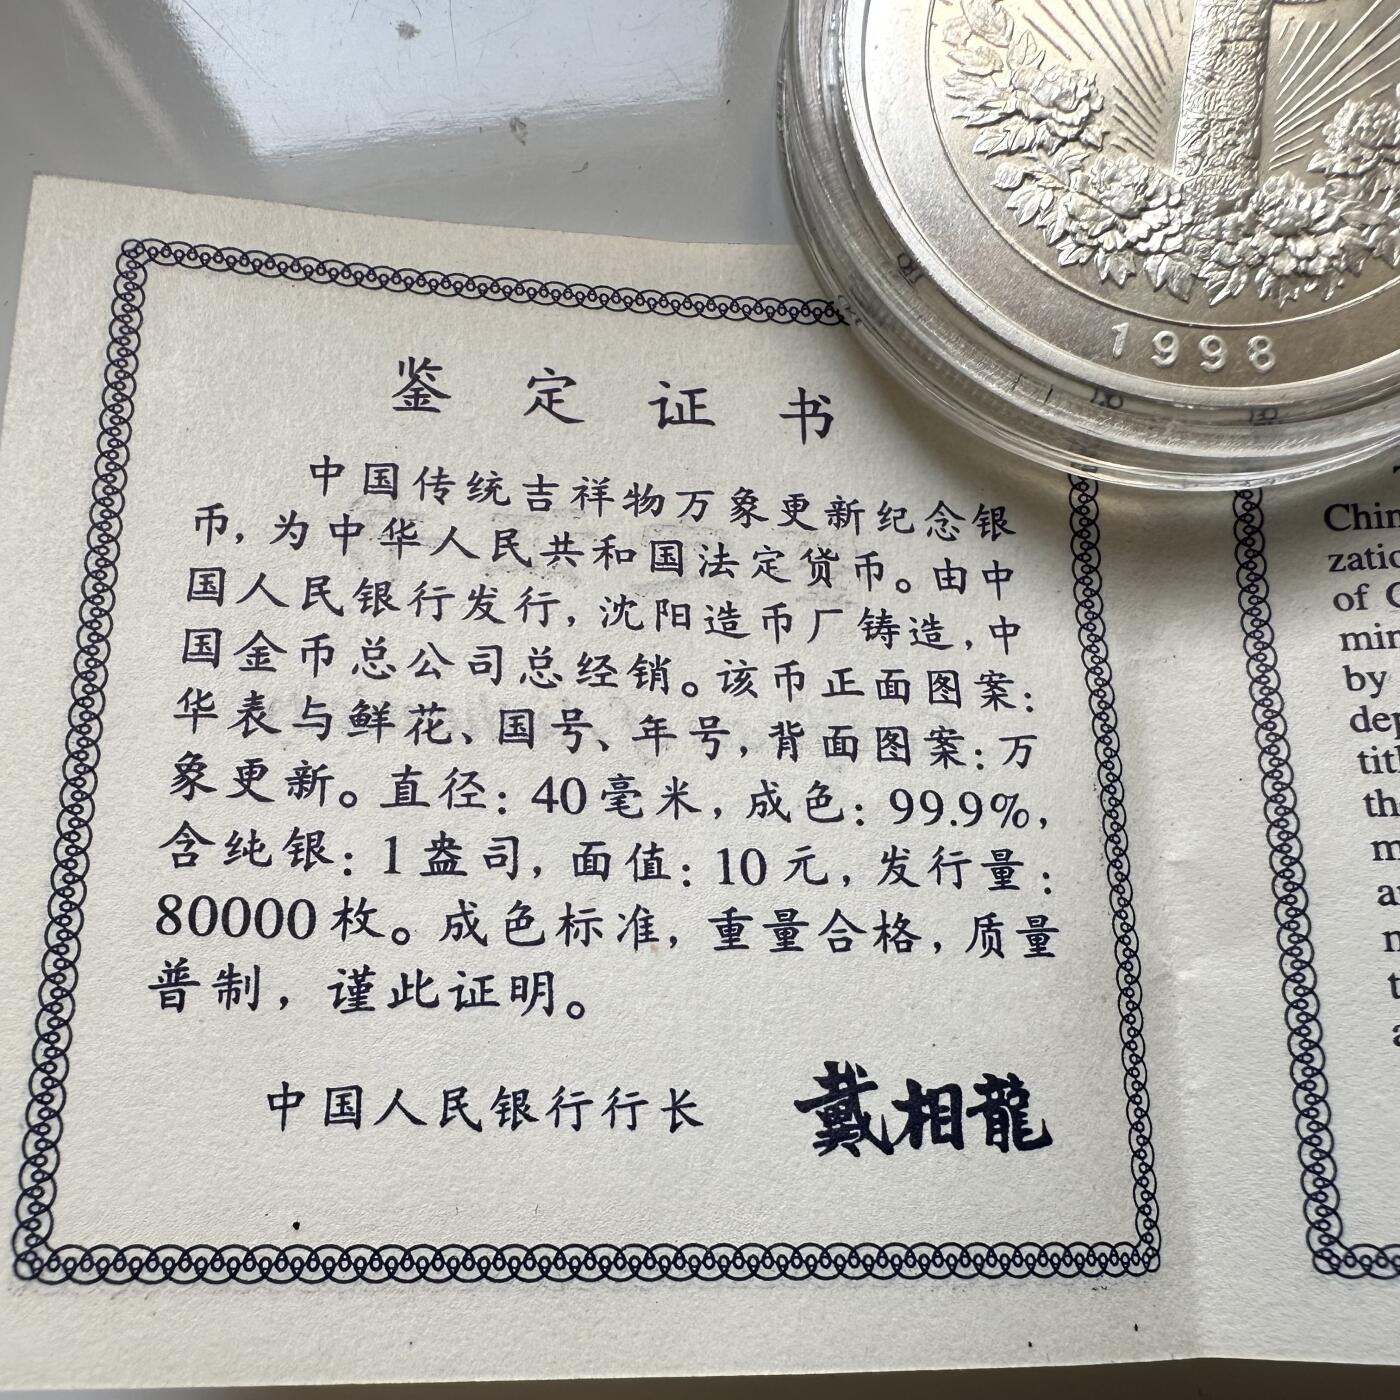 1998
鉴定证书
中国传统吉祥物万象更新纪念银
币，为中华人民共和国法定货币。由中
国人民银行发行，沈阳造币厂铸造，中
国金币总公司总经销。该币正面图案：
华表与鲜花、国号、年号，背面图案：万
象更新。直径：40毫米，成色：99.9%，
含纯银：1盎司，面值：10元，发行量：
80000枚。成色标准，重量合格，质量
普制，谨此证明。
中国人民银行行长 戴相龍
Chin
zatio
of C
min
by
dep
titl
th
m
a
n
t
a